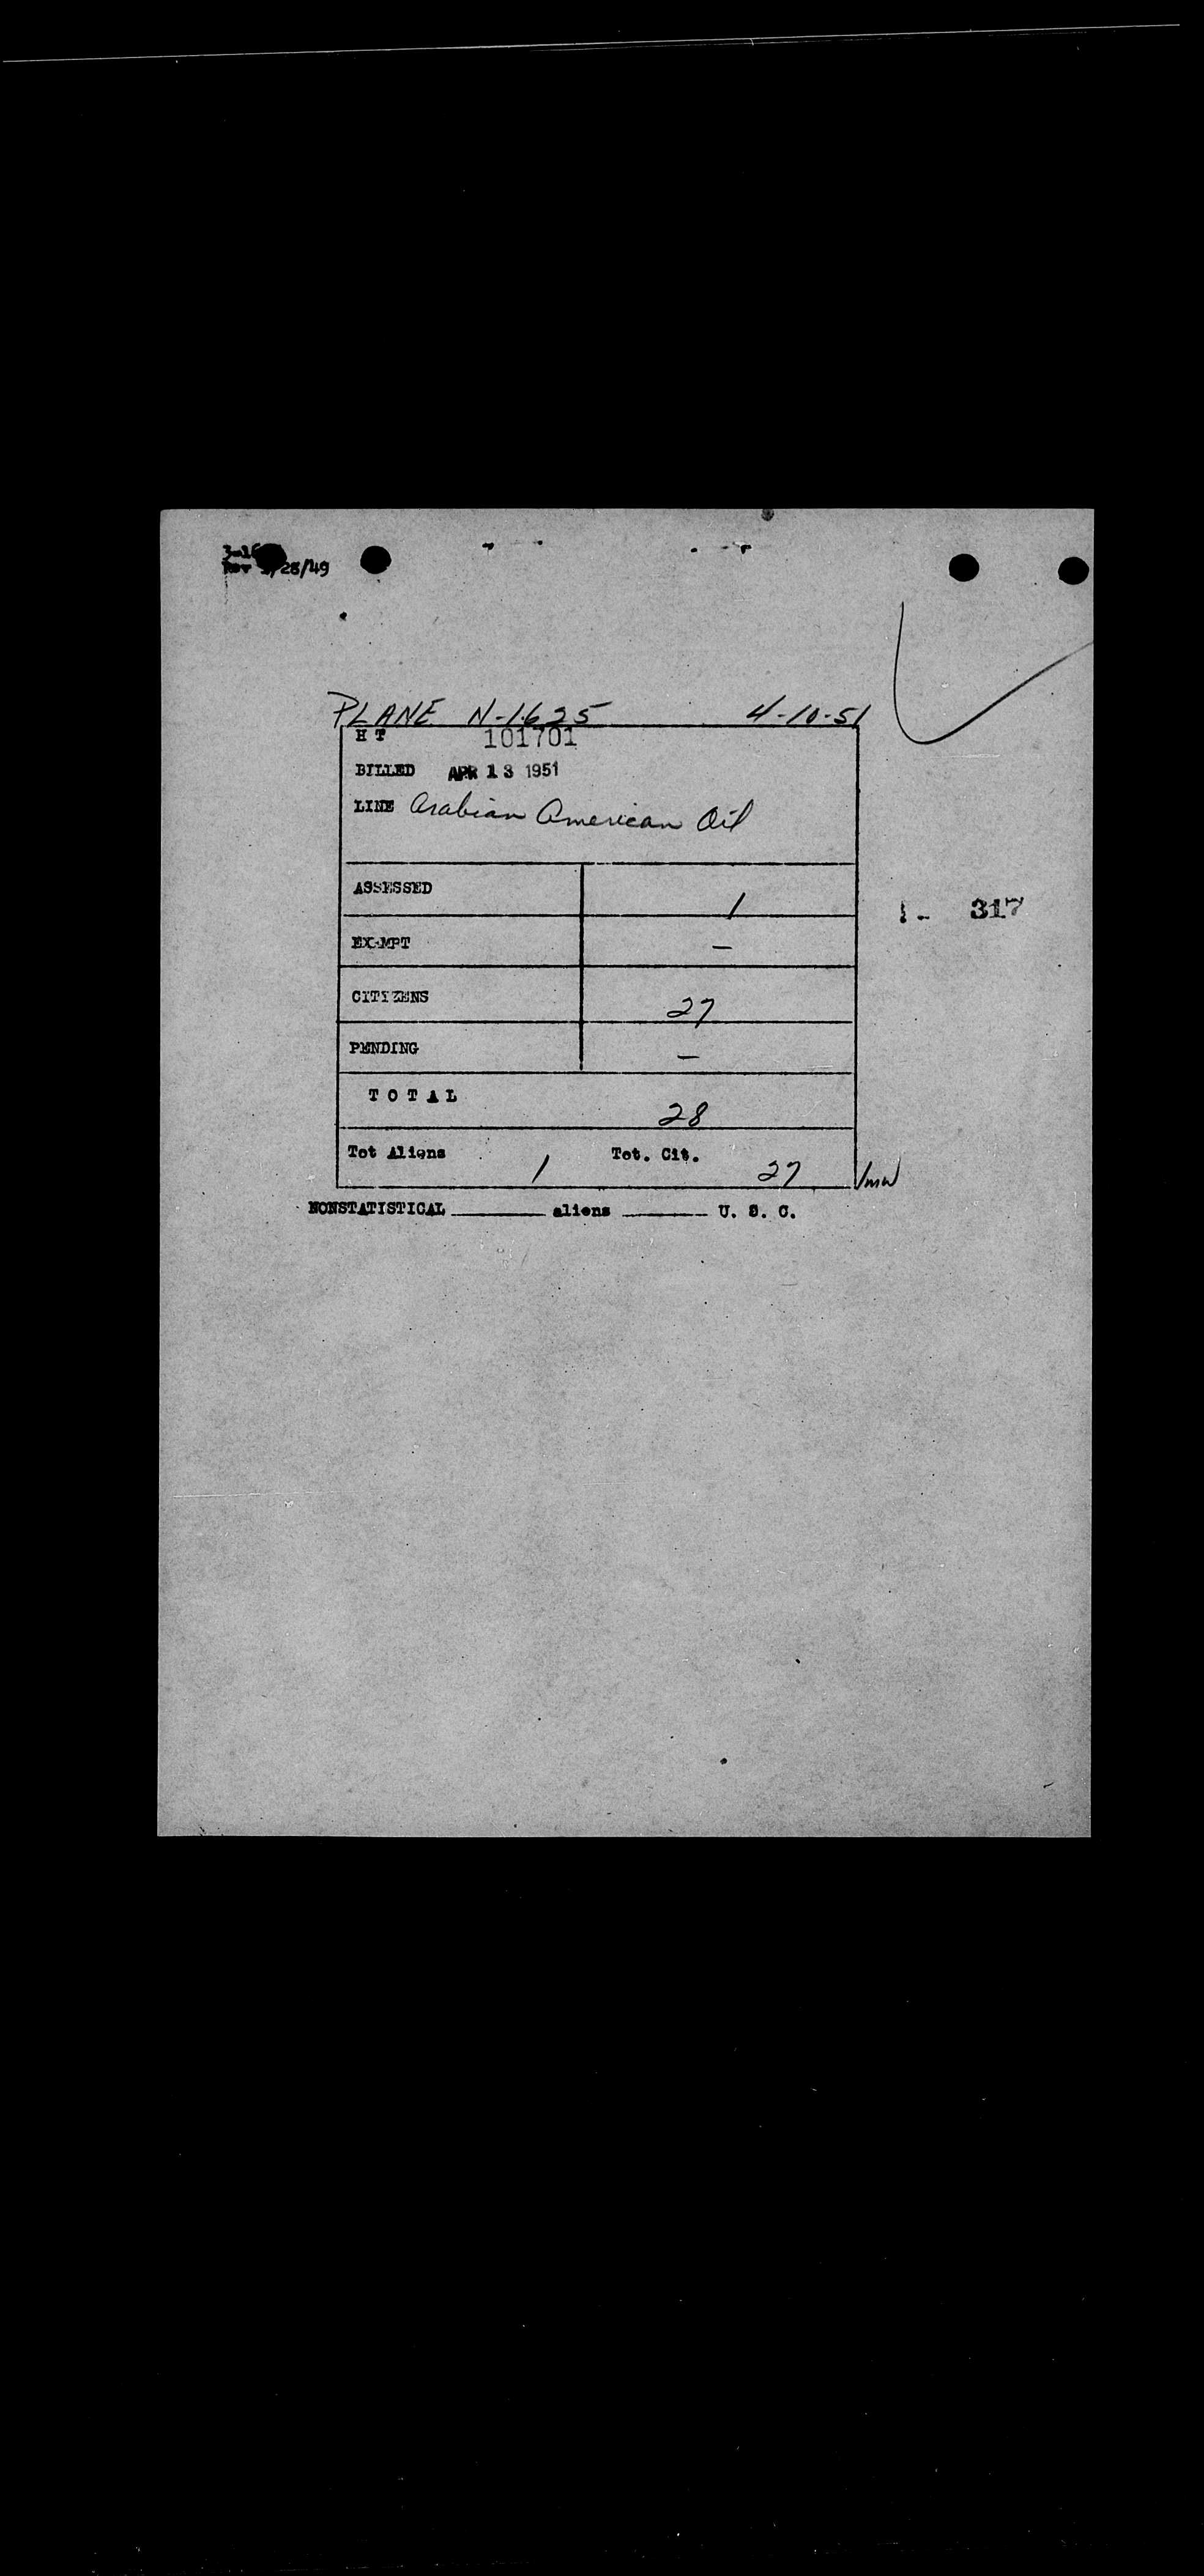 /28/49
PLANE N-1625 4-10-51
H T 101701
BILLED APR 13 1951
LINE Arabian American Oil
ASSESSED 1
317
EXEMPT —
CITIZENS 27
PENDING —
TOTAL 28
Tot Aliens 1 Tot. Cit. 27
NONSTATISTICAL ______ aliens ______ U. S. C.